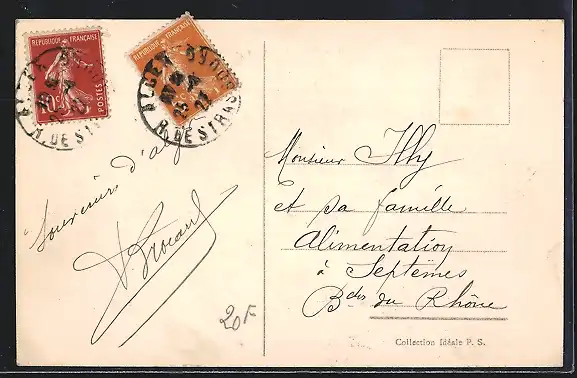 REPUBLIQUE FRANÇAISE
10c
POSTES
ALGER
R. DE STRAS
REPUBLIQUE FRANÇAISE
ALGER
R. DE STRAS
Souvenirs d'alger
20F
Monsieur Illy
et sa famille
Alimentation
à Septèmes
Bdes du Rhône
Collection Idéale P. S.